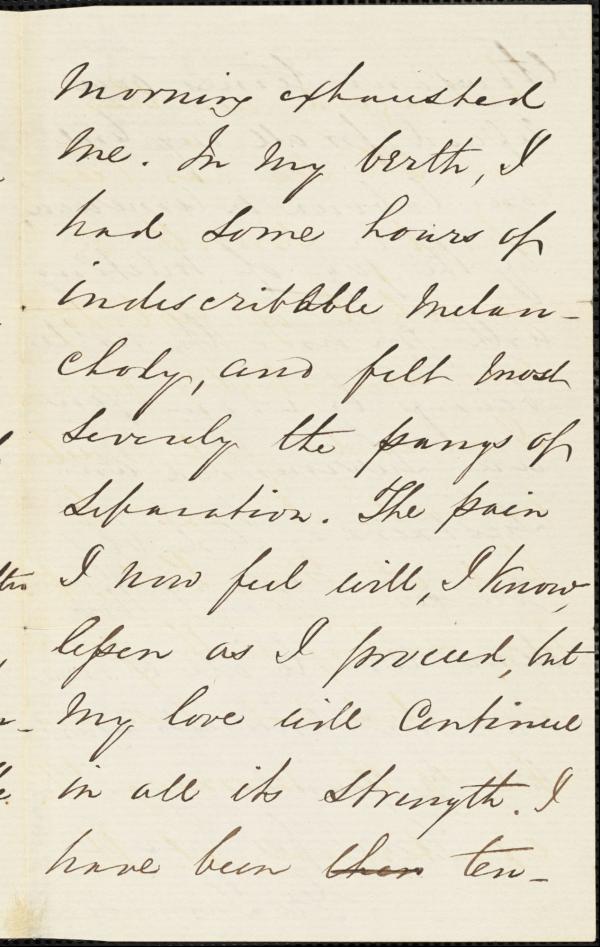 morning exhausted
me. In my berth, I
had some hours of
indescribable melan-
choly, and felt most
severely the pangs of
separation. The pain
I now feel will, I know,
lessen as I proceed, but
my love will continue
in all its strength. I
have been then ten-